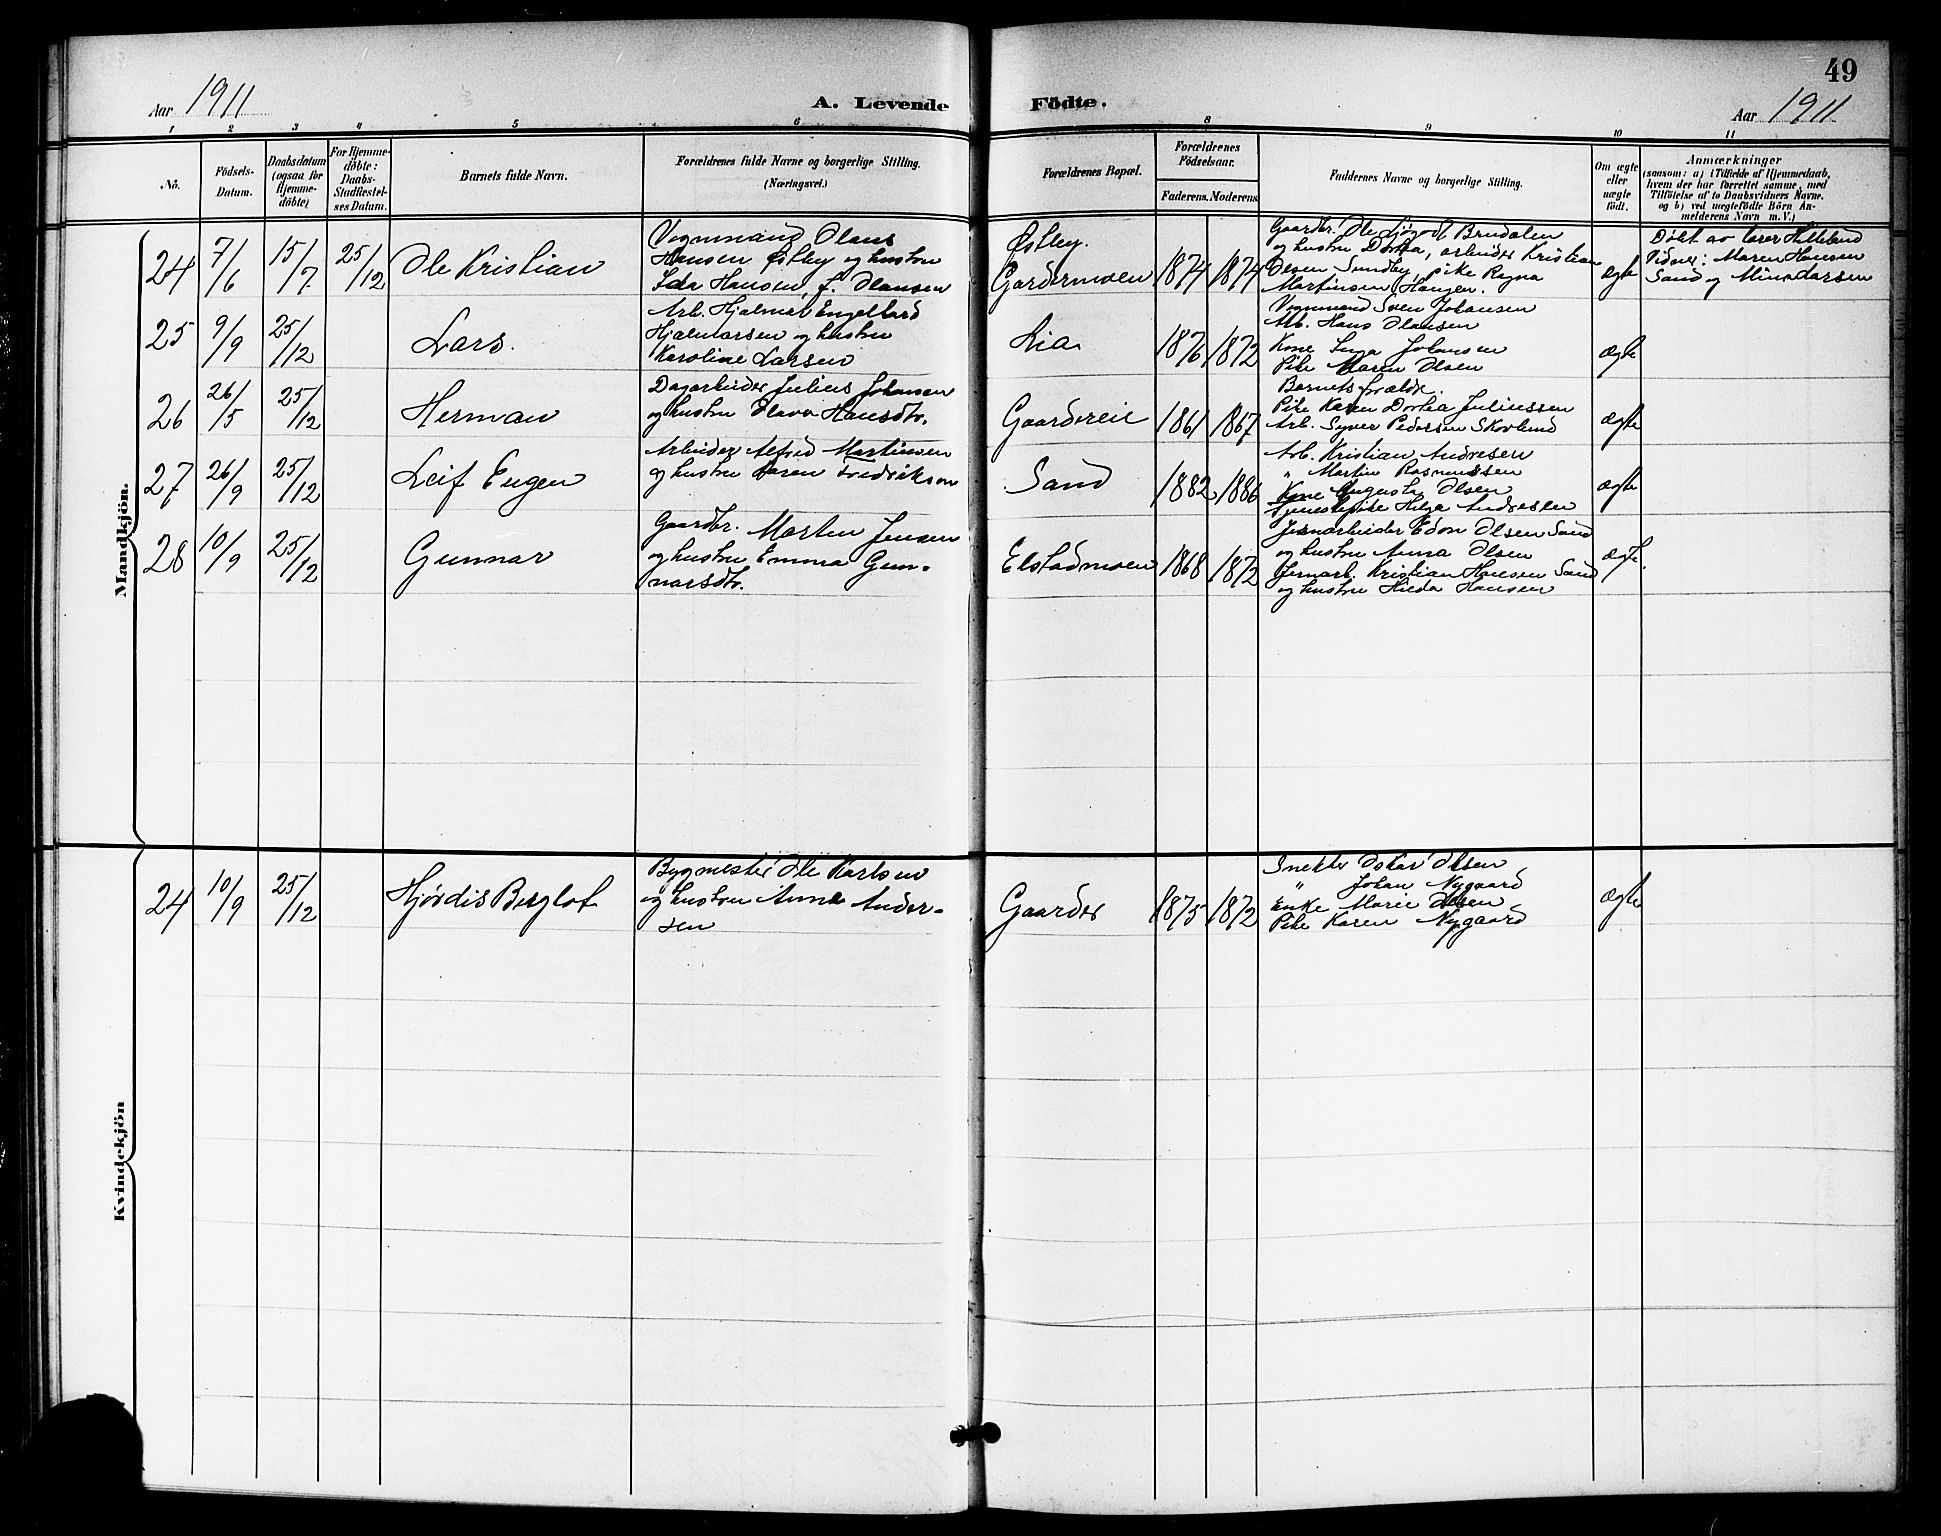 49
Aar 1911
A. Levende Födte.
Aar 1911
1 2 3 4 5 6 8 9 10 11
Nö.
Födsels-
Datum.
Daabsdatum
(ogsaa for
Hjemme-
döbte)
For Hjemme-
döbte:
Daabs-
Stadfæstel-
ses Datum.
Barnets fulde Navn.
Forældrenes fulde Navne og borgerlige Stilling.
(Næringsvei.)
Forældrenes Bopæl.
Forældrenes
Födselsaar.
Faderens. Moderens
Faddernes Navne og borgerlige Stilling.
Om ægte
eller
uægte
födt.
Anmærkninger
(saasom: a) i Tilfælde af Hjemmedaab,
hvem der har forrettet samme, med
Tilföielse af to Daabsvidners Navne.
og b) ved uægtefödte Börn An-
melderens Navn m. V.)
Mandkjön.
24 7/6 15/7 25/12 Ole Kristian
Vognmand Olaus
Hansen Østby og hustru
Ida Hansen f. Olausen
Østby.
Gardermoen 1874 1874
Gaardbr. Ole Brudalen
og hustru Dorthea, arbeider Kristian
Olsen Sundby, pike Ragna
Martinsen Haugen.
ægte
Døbt av lærer Hilleland
Vidner: Maren Hansen
Sand og Mina Larsen
25 9/9 25/12 Lars.
Arb. Hjalmar Engelbard
Hjalmarsen og hustru
Karoline Larsen
Lia 1876 1872
Vognmand Sven Johansen
Arb. Hans Olausen
Kone Inga Johansen
Pike Maren Olsen
ægte
26 26/5 25/12 Herman
Dagarbeider Julius Johansen
og hustru Olava Hansdtr.
Gaardereie 1861 1867
Barnets forældre
Pike Karen Dorthea Juliussen
Arb. Syver Pedersen Skovlund
ægte
27 26/9 25/12 Leif Eugen
Arbeider Alfred Martinsen
og hustru Karen Fredriksen
Sand 1882 1886
Arb. Kristian Andresen
" Martin Rasmussen
Kone Augusta Olsen
Tjenestepike Helga Andresen
ægte
28 10/9 25/12 Gunnar
Gaardbr. Morten Jensen
og hustru Emma Gun-
narsdtr.
Elstadmoen 1868 1872
Jernarbeider Edon Olsen Sand
og hustru Anna Olsen
Jernarb. Kristian Hansen Sand
og hustru Hilda Hansen
ægte.
Kvindekjön
24 10/9 25/12 Hjørdis Bergliot
Bygmester Ole Karlsen
og hustru Anna Ander-
sen
Gaarder 1875 1872
Snekker Oskar Olsen
" Johan Nygaard
Enke Marie Olsen
Pike Karen Nygaard
ægte